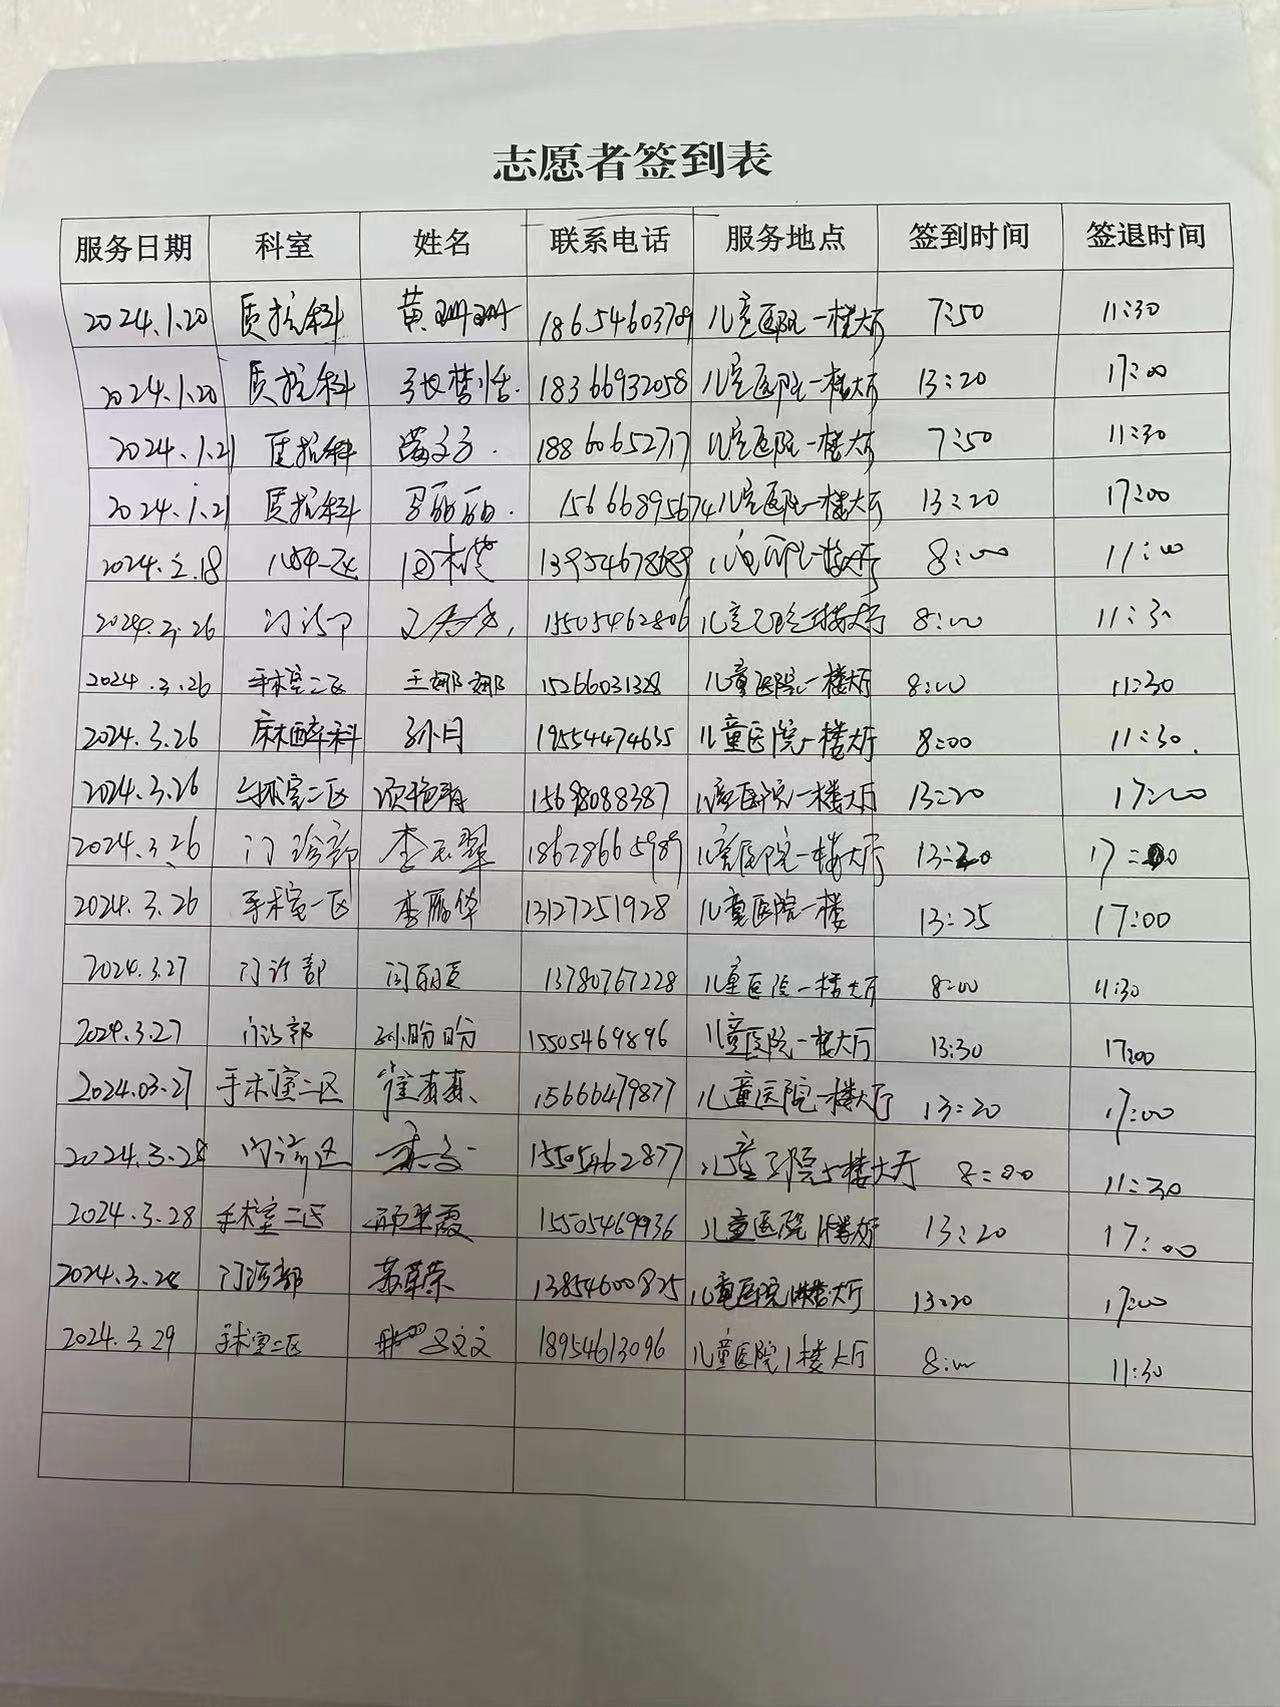 志愿者签到表
服务日期 科室 姓名 联系电话 服务地点 签到时间 签退时间
2024.1.20 质控科 黄珊珊 18654603709 儿童医院一楼大厅 7:50 11:30
2024.1.20 质控科 张梦恬 18366932058 儿童医院一楼大厅 13:20 17:00
2024.1.21 质控科 18860652717 儿童医院一楼大厅 7:50 11:30
2024.1.21 质控科 丽丽 15666895674 儿童医院一楼大厅 13:20 17:00
2024.2.18 13954678689 一楼大厅 8:00 11:00
2024.2.26 门诊部 15505462806 楼大厅 8:00 11:30
2024.3.26 手术室二区 王娜娜 15266031328 儿童医院一楼大厅 8:00 11:30
2024.3.26 麻醉科 孙月 19554474635 儿童医院一楼大厅 8:00 11:30.
2024.3.26 手术室二区 顾艳青 15698088387 儿童医院一楼大厅 13:20 17:00
2024.3.26 门诊部 李玉翠 18678665989 儿童医院一楼大厅 13:20 17:00
2024.3.26 手术室一区 李丽华 13127251928 儿童医院一楼 13:25 17:00
2024.3.27 门诊部 闫丽夏 13780767228 儿童医院一楼大厅 8:00 11:30
2024.3.27 门诊部 孙盼盼 15505469896 儿童医院一楼大厅 13:30 17:00
2024.03.27 手术室二区 崔真真 15666479877 儿童医院一楼大厅 13:20 17:00
2024.3.28 门诊区 15505462877 儿童医院一楼大厅 8:00 11:30
2024.3.28 手术室二区 顾翠霞 15505469936 儿童医院1楼大厅 13:20 17:00
2024.3.28 门诊部 苏翠荣 13854600825 儿童医院1楼大厅 13:20 17:00
2024.3.29 手术室二区 吕文文 18954613096 儿童医院1楼大厅 8:00 11:30